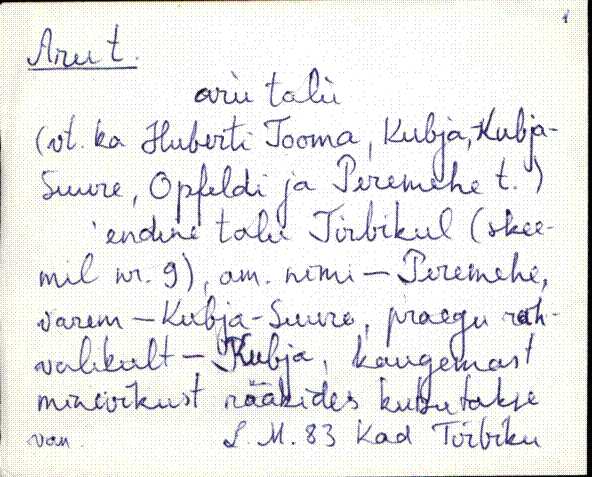 1
Aru t.
aru talu
(vt. ka Huberti Tooma, Kubja, Kubja-
Suure, Opfeldi ja Peremehe t.)
'endine talu Tirbikul (skee-
mil nr. 9), am. nimi – Peremehe,
varem – Kubja-Suure, praegu rah-
valikult – Kubja, kaugemast
minevikust rääkides kutsutakse
van. L. M. 83 Kad Tirbiku